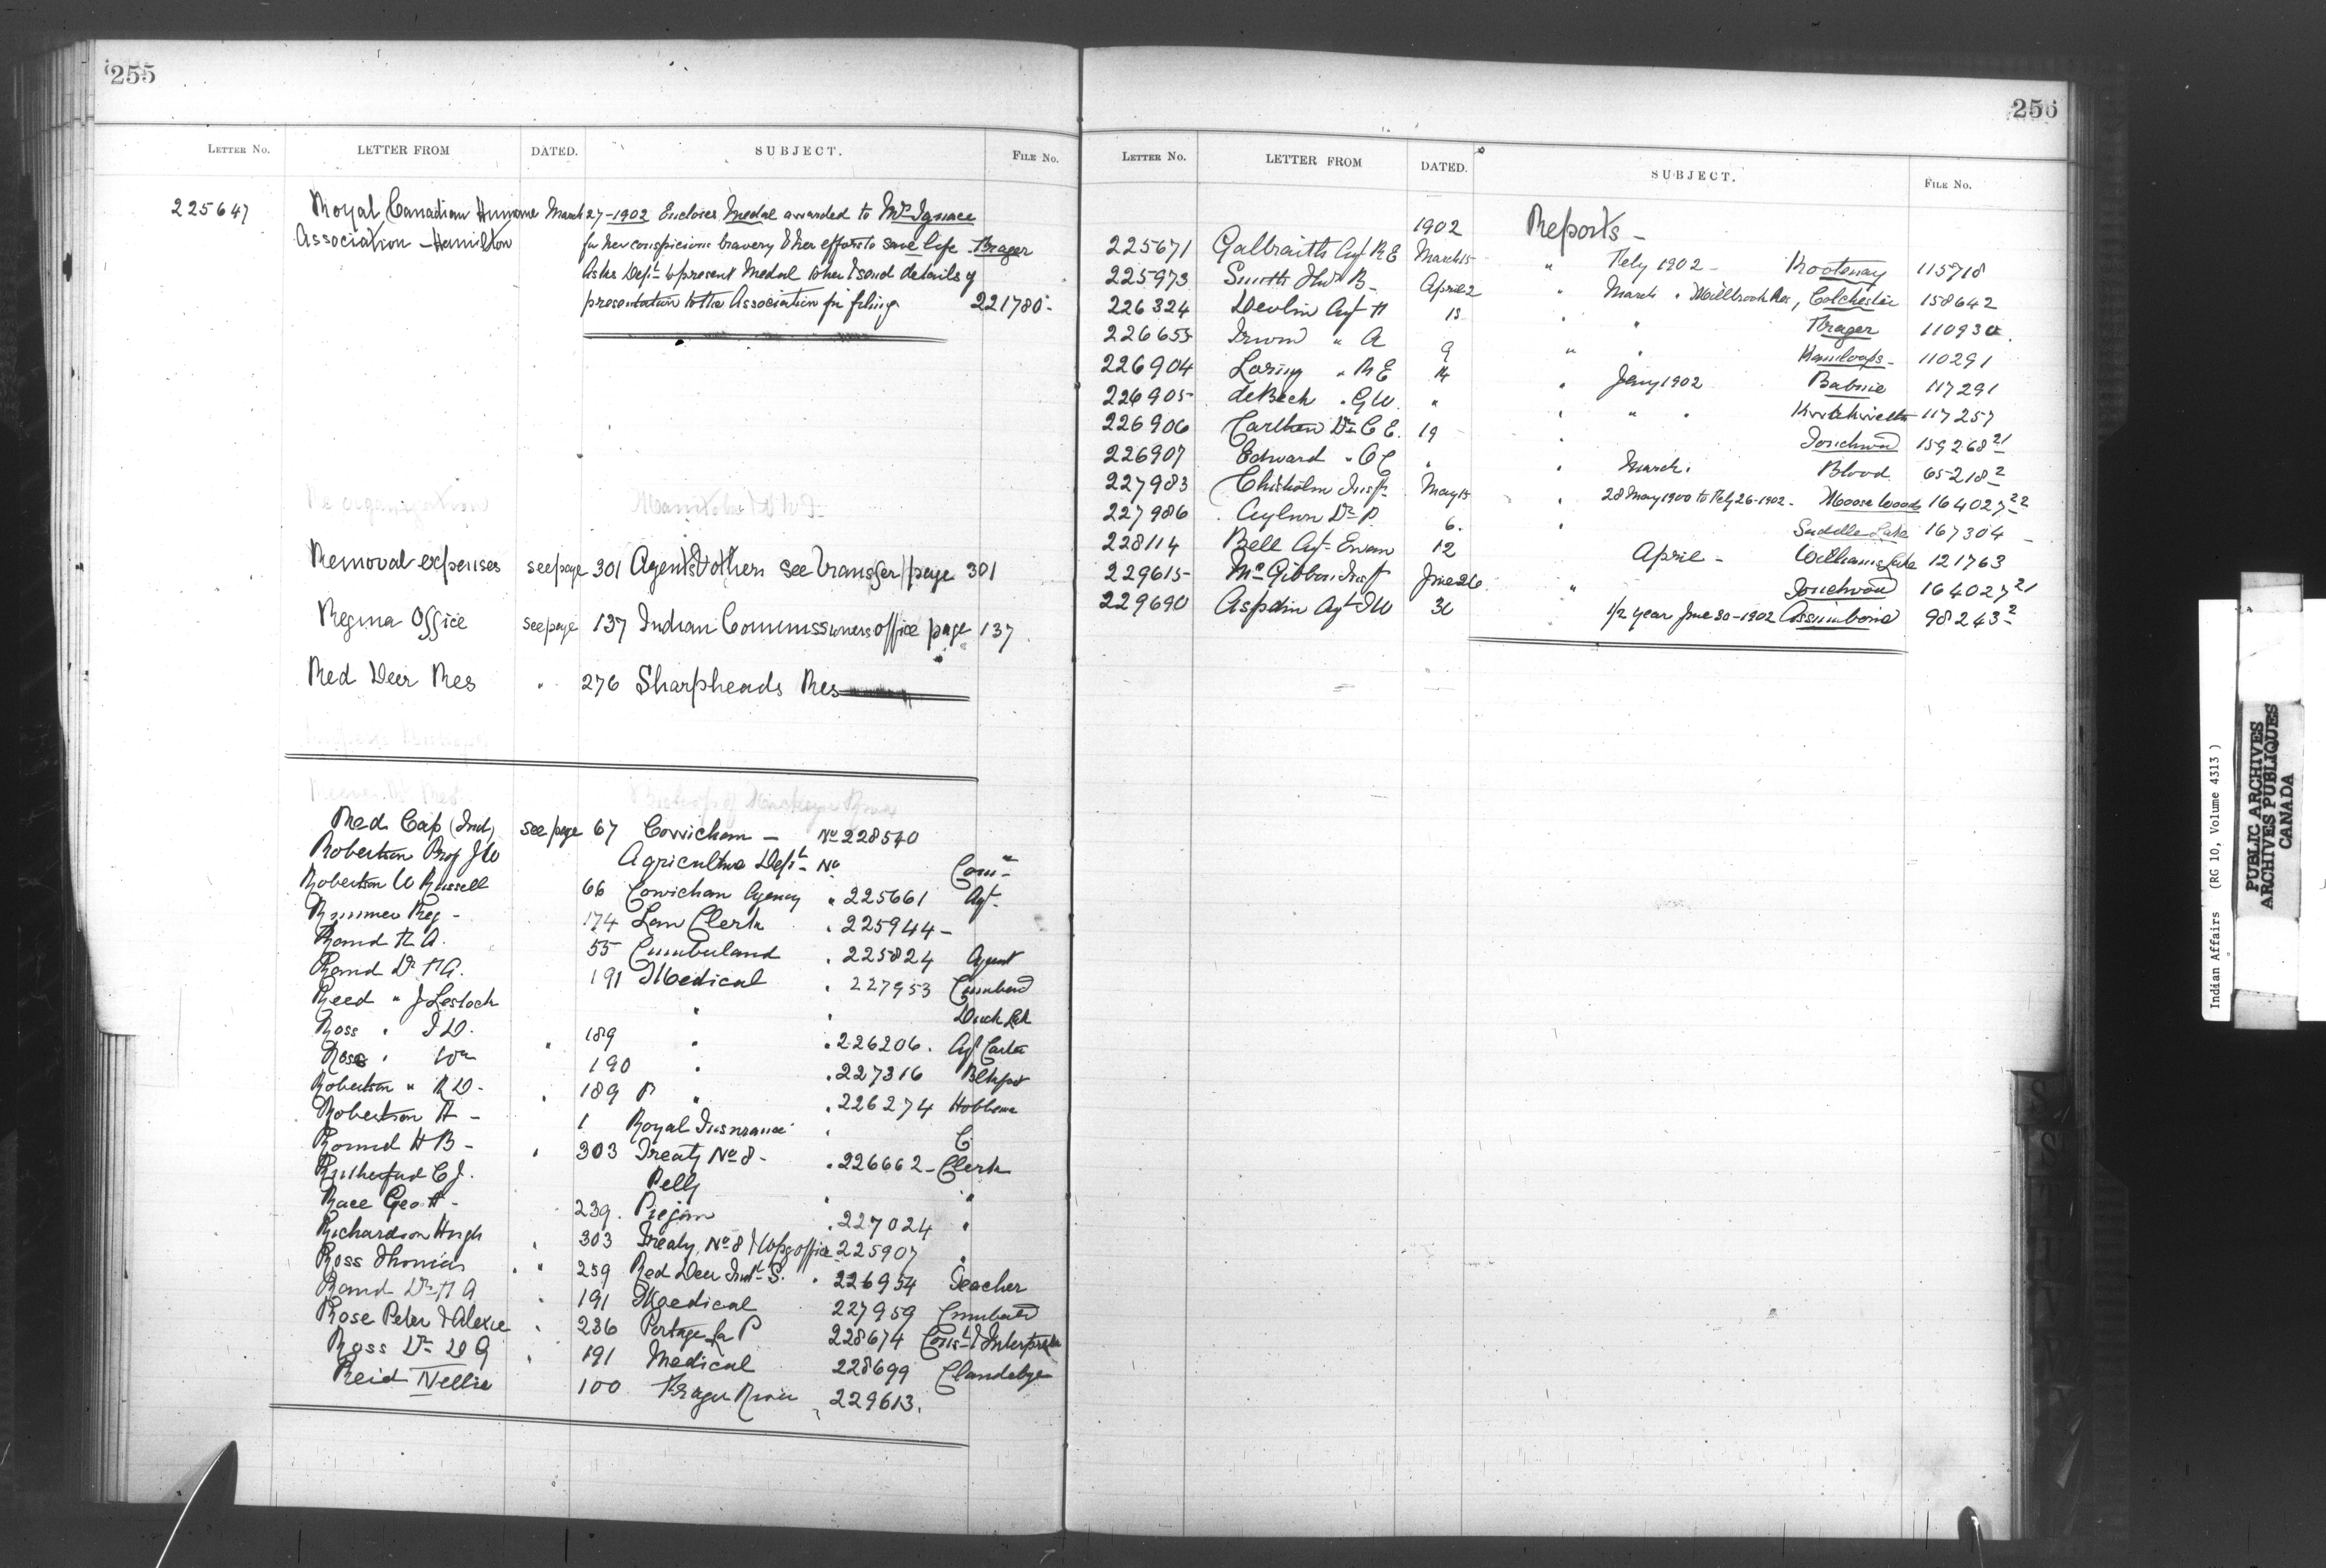 255
LETTER NO. LETTER FROM DATED. SUBJECT. FILE NO.
225647 Royal Canadian Humane March 27-1902 Encloses Medal awarded to Mrs Ignace
Association - Hamilton for her conspicious bravery & her efforts to save life. Fraser
Asks Dept to present Medal to her & send details of
presentation to the Association for filing 221780.
Re organization Manitoba & N W T
Removal expenses see page 301 Agents & others see Transfer page 301
Regina Office see page 137 Indian Commissioners office page 137
Red Deer Res " 276 Sharpheads Res
Red Cap (Ind) see page 67 Cowichan - No 228540
Robertson Prof J W Agriculture Dept No Com
Robertson W Russell 66 Cowichan Agency " 225661 Agt
Rimmer Reg - 174 Law Clerk " 225944 -
Rand F A. 55 Cumberland " 225824 Agent
Rand Dr F A. 191 Medical " 227953 Cumberd
Reed " J Lestock " " Duck Lk
Ross " J D. " 189 " " 226206. Agt Carlton
Rose " Wm 190 " " 227316
Robertson " R D - " 189 " " 226274 Hobbema
Robertson A - 1 Royal Insurance " C
Round H B - " 303 Treaty No 8 - " 226662 - Clerk
Rutherford C J. Pelly " "
Race Geo H - 239. Piegan " 227024 "
Richardson Hugh " 303 Treaty No 8 & Wpg office 225907 "
Ross Thomas " " 259 Red Deer Indl S. " 226954 Teacher
Rand Dr F A " 191 Medical 227959 Cumbeld
Rose Peter & Alexie " 236 Portage la P 228674 Cons & Interpreter
Ross Dr D G " 191 Medical 228699 Clandeboye
Reid Nellie 100 Fraser River " 229613.
256
LETTER NO. LETTER FROM DATED. SUBJECT. FILE NO.
1902 Reports -
225671 Galbraith Agt R E March 15 " Feby 1902 - Kootenay 115718
225973 Smith D H B - April 2 " March " Millbrook Res, Colchester 158642
226324 Devlin Agt F 15 " " Fraser 110930.
226655 Irwin " A 9 " " Kamloops - 110291
226904 Loring " R E 14 " Jany 1902 Babine 117291
226905 deBeck " G W. " " " " Kwawkewlth 117257
226906 Carthew Dr C E. 19 " Touchwood 159268 21
226907 Edward " O C " " March " Blood 65218 2
227983 Chisholm Insp May 15 " 28 May 1900 to Feby 26-1902 - Moose Woods 164027 22
227986 Aylen Dr P 6. " Saddle Lake 167304 -
228114 Bell Agt Ewen 12 April - Williams Lake 121763
229615 McGibbon Insp June 26 " Touchwood 164027 21
229690 Aspdin Agt T W 30 1/2 year June 30-1902 Assiniboine 98243 2
Indian Affairs (RG 10, Volume 4313)
PUBLIC ARCHIVES
ARCHIVES PUBLIQUES
CANADA